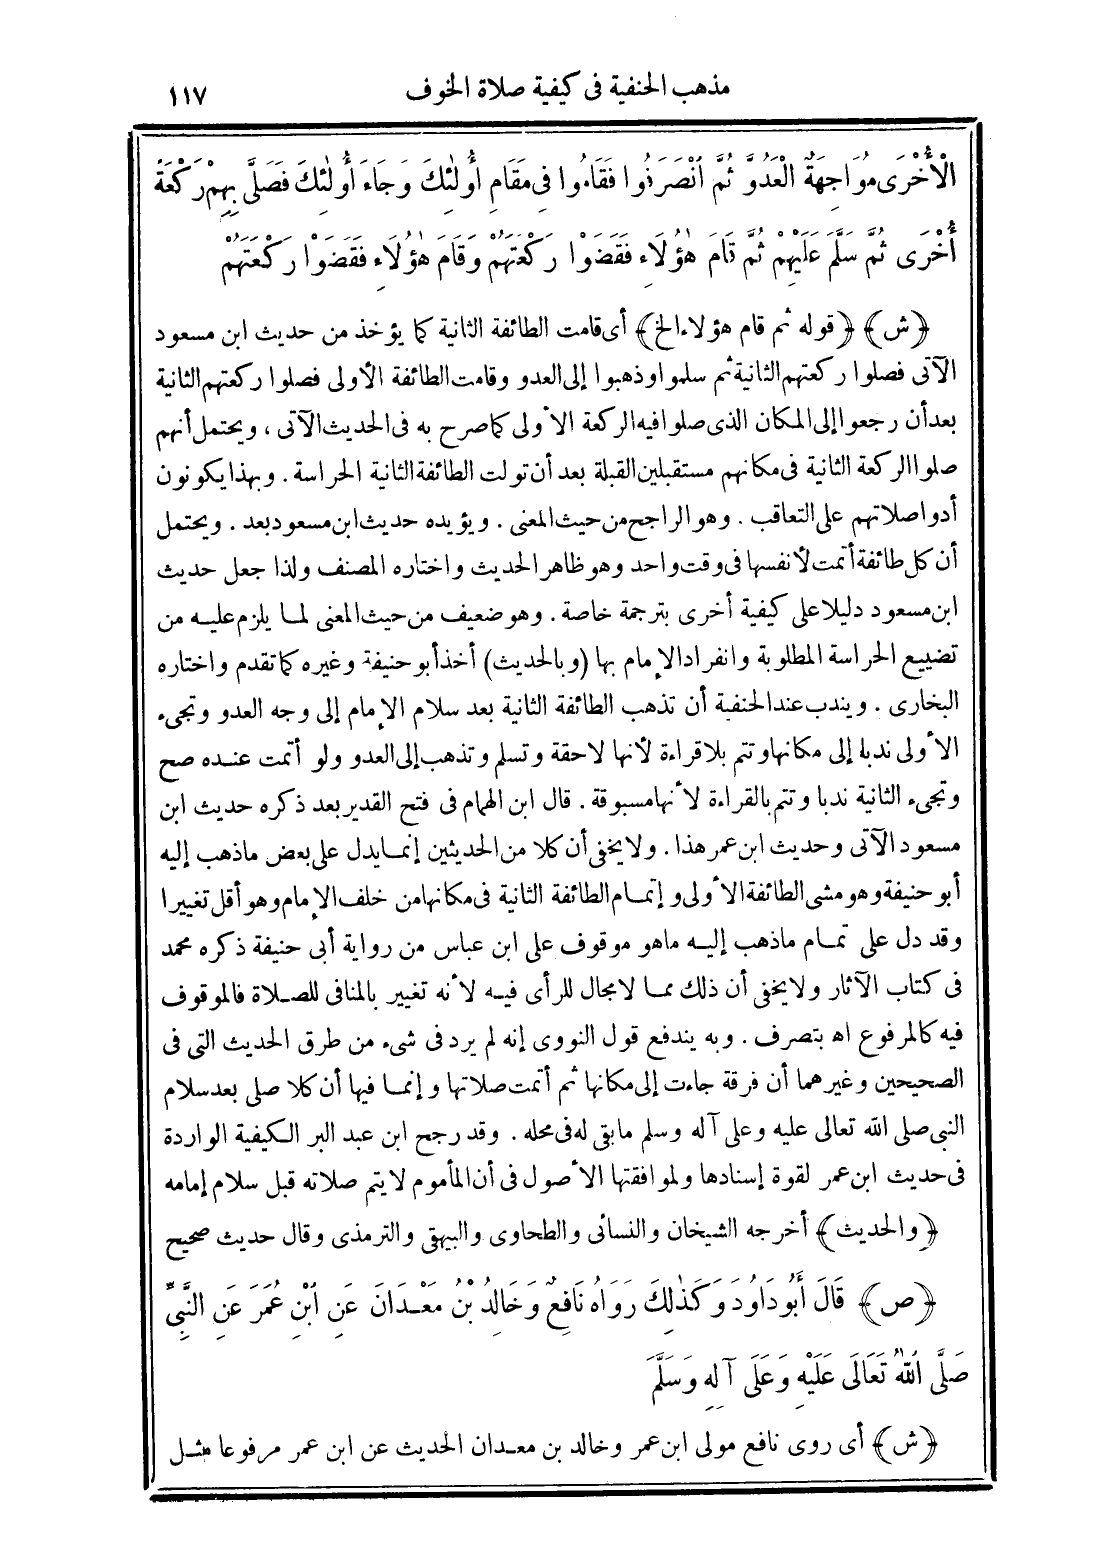 مذهب الحنفية فى كيفية صلاة الخوف ١١٧
الْأُخْرَى مُوَاجِهَةُ الْعَدُوِّ ثُمَّ انْصَرَفُوا فَقَامُوا فِى مَقَامِ أُولٰئِكَ وَجَاءَ أُولٰئِكَ فَصَلَّى بِهِمْ رَكْعَةً
أُخْرَى ثُمَّ سَلَّمَ عَلَيْهِمْ ثُمَّ قَامَ هٰؤُلَاءِ فَقَضَوْا رَكْعَتَهُمْ وَقَامَ هٰؤُلَاءِ فَقَضَوْا رَكْعَتَهُمْ
﴿ش﴾ ﴿قوله ثم قام هؤلاء الخ﴾ أى قامت الطائفة الثانية كما يؤخذ من حديث ابن مسعود
الآتى فصلوا ركعتهم الثانية ثم سلموا وذهبوا إلى العدو وقامت الطائفة الأولى فصلوا ركعتهم الثانية
بعد أن رجعوا إلى المكان الذى صلوا فيه الركعة الأولى كما صرح به فى الحديث الآتى ، ويحتمل أنهم
صلوا الركعة الثانية فى مكانهم مستقبلين القبلة بعد أن تولت الطائفة الثانية الحراسة . وبهذا يكونون
أدوا صلاتهم على التعاقب . وهو الراجح من حيث المعنى . ويؤيده حديث ابن مسعود بعد . ويحتمل
أن كل طائفة أتمت لأنفسها فى وقت واحد وهو ظاهر الحديث واختاره المصنف ولذا جعل حديث
ابن مسعود دليلا على كيفية أخرى بترجمة خاصة . وهو ضعيف من حيث المعنى لما يلزم عليه من
تضييع الحراسة المطلوبة وانفراد الإمام بها (وبالحديث) أخذ أبو حنيفة وغيره كما تقدم واختاره
البخارى . ويندب عند الحنفية أن تذهب الطائفة الثانية بعد سلام الإمام إلى وجه العدو وتجىء
الأولى ندبا إلى مكانها وتتم بلا قراءة لأنها لاحقة وتسلم وتذهب إلى العدو ولو أتمت عنده صح
وتجىء الثانية ندبا وتتم بالقراءة لأنها مسبوقة . قال ابن الهمام فى فتح القدير بعد ذكره حديث ابن
مسعود الآتى وحديث ابن عمر هذا . ولا يخفى أن كلا من الحديثين إنما يدل على بعض ما ذهب إليه
أبو حنيفة وهو مشى الطائفة الأولى وإتمام الطائفة الثانية فى مكانها من خلف الإمام وهو أقل تغييرا
وقد دل على تمام ما ذهب إليه ما هو موقوف على ابن عباس من رواية أبى حنيفة ذكره محمد
فى كتاب الآثار ولا يخفى أن ذلك مما لا مجال للرأى فيه لأنه تغيير بالمنافى للصلاة فالموقوف
فيه كالمرفوع اه بتصرف . وبه يندفع قول النووى إنه لم يرد فى شىء من طرق الحديث التى فى
الصحيحين وغيرهما أن فرقة جاءت إلى مكانها ثم أتمت صلاتها وإنما فيها أن كلا صلى بعد سلام
النبى صلى الله تعالى عليه وعلى آله وسلم ما بقى له فى محله . وقد رجح ابن عبد البر الكيفية الواردة
فى حديث ابن عمر لقوة إسنادها ولموافقتها الأصول فى أن المأموم لا يتم صلاته قبل سلام إمامه
﴿والحديث﴾ أخرجه الشيخان والنسائى والطحاوى والبيهقى والترمذى وقال حديث صحيح
﴿ص﴾ قَالَ أَبُو دَاوُدَ وَكَذٰلِكَ رَوَاهُ نَافِعٌ وَخَالِدُ بْنُ مَعْدَانَ عَنِ ابْنِ عُمَرَ عَنِ النَّبِىِّ
صَلَّى اللهُ تَعَالَى عَلَيْهِ وَعَلَى آلِهِ وَسَلَّمَ
﴿ش﴾ أى روى نافع مولى ابن عمر وخالد بن معدان الحديث عن ابن عمر مرفوعا مثل